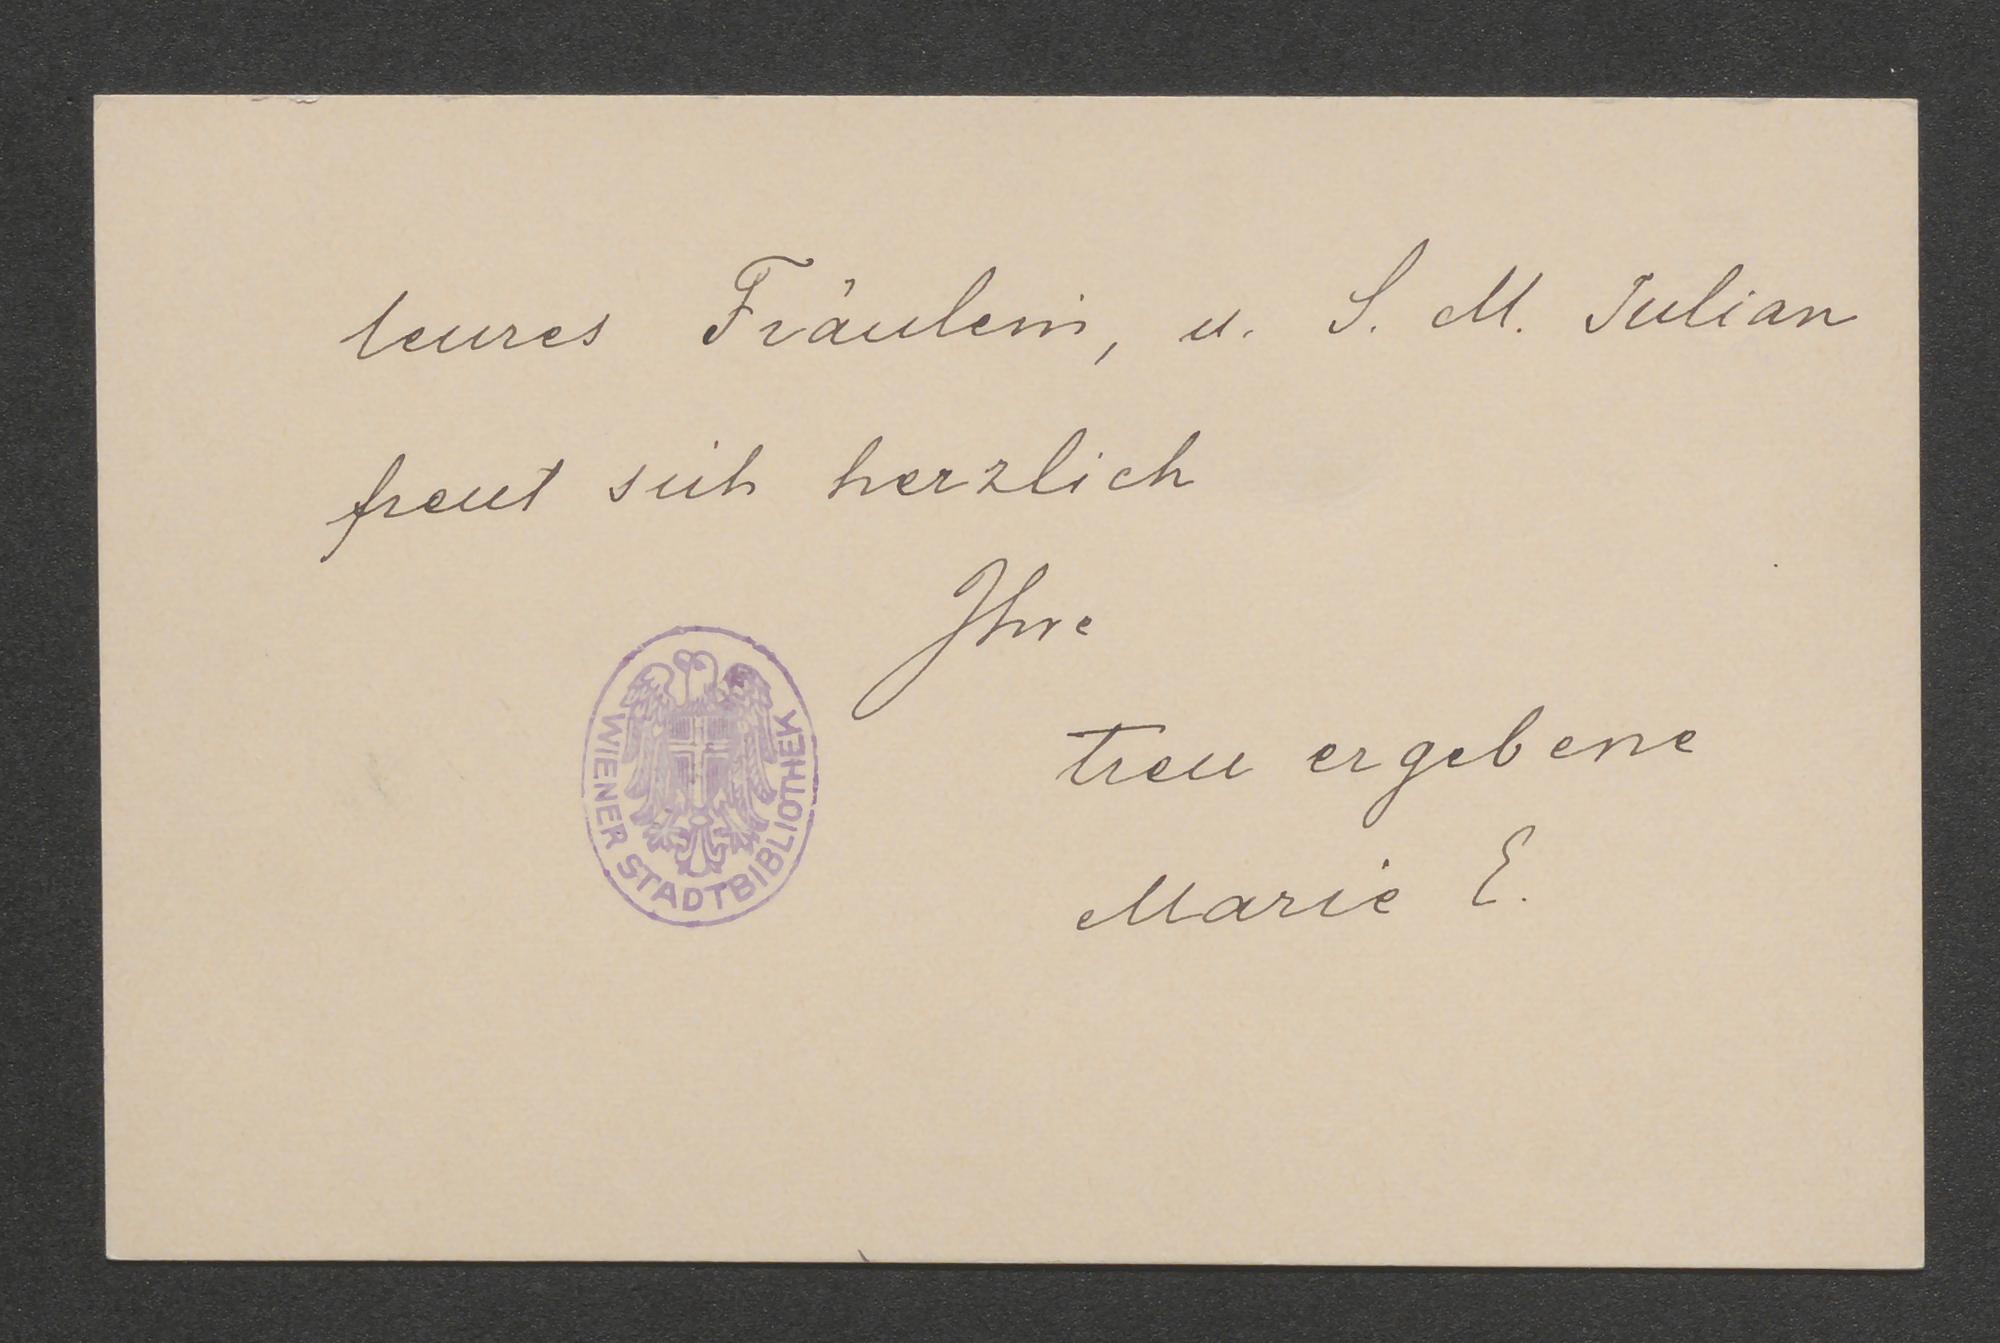 teures Fräulein, u. S. M. Julian
freut sich herzlich
Ihre
treu ergebene
Marie E.
WIENER STADTBIBLIOTHEK